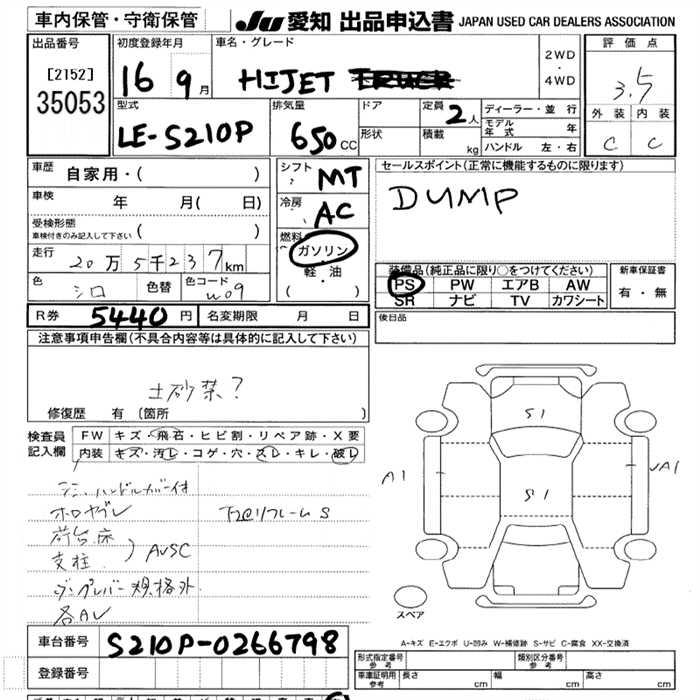 車内保管・守衛保管 JU 愛知 出品申込書 JAPAN USED CAR DEALERS ASSOCIATION
出品番号 初度登録年月 車名・グレード 2WD・4WD 評価点
[2152]
35053
16 9月 HIJET 3.5
型式 排気量 ドア 定員 2人 ディーラー・並行 外装 内装
LE-S210P 650cc 形状 積載 kg モデル年式 年 C C
ハンドル 左・右
車歴 自家用・( ) シフト MT セールスポイント(正常に機能するものに限ります)
車検 年 月( 日) 冷房 AC DUMP
受検形態
車検付きのみ記入して下さい ( ) 燃料 ガソリン
走行 20万5千237km 軽・油
色 シロ 色替 色コード W09 ( ・ )
装備品(純正品に限り○をつけてください) 新車保証書
PS PW エアB AW 有・無
SR ナビ TV カワシート
R券 5440円 名変期限 月 日 後日品
注意事項申告欄(不具合内容等は具体的に記入して下さい)
土砂禁?
修復歴 有(箇所
検査員 FW キズ・飛石・ヒビ割・リペア跡・X要
記入欄 内装 キズ・汚レ・コゲ・穴・スレ・キレ・破レ
ハンドルカバー付
ホロヤブレ 下廻リフレームS
荷台床
支柱 ) AUSC
ダンプレバー規格外
各AU
S1
S1
A1
A1
スペア
A-キズ E-エクボ U-凹み W-補修跡 S-サビ C-腐食 XX-交換済
車台番号 S210P-0266798
登録番号
形式指定番号 参考 類別区分番号 参考
車庫証明用 参考 長さ cm 幅 cm 高さ cm